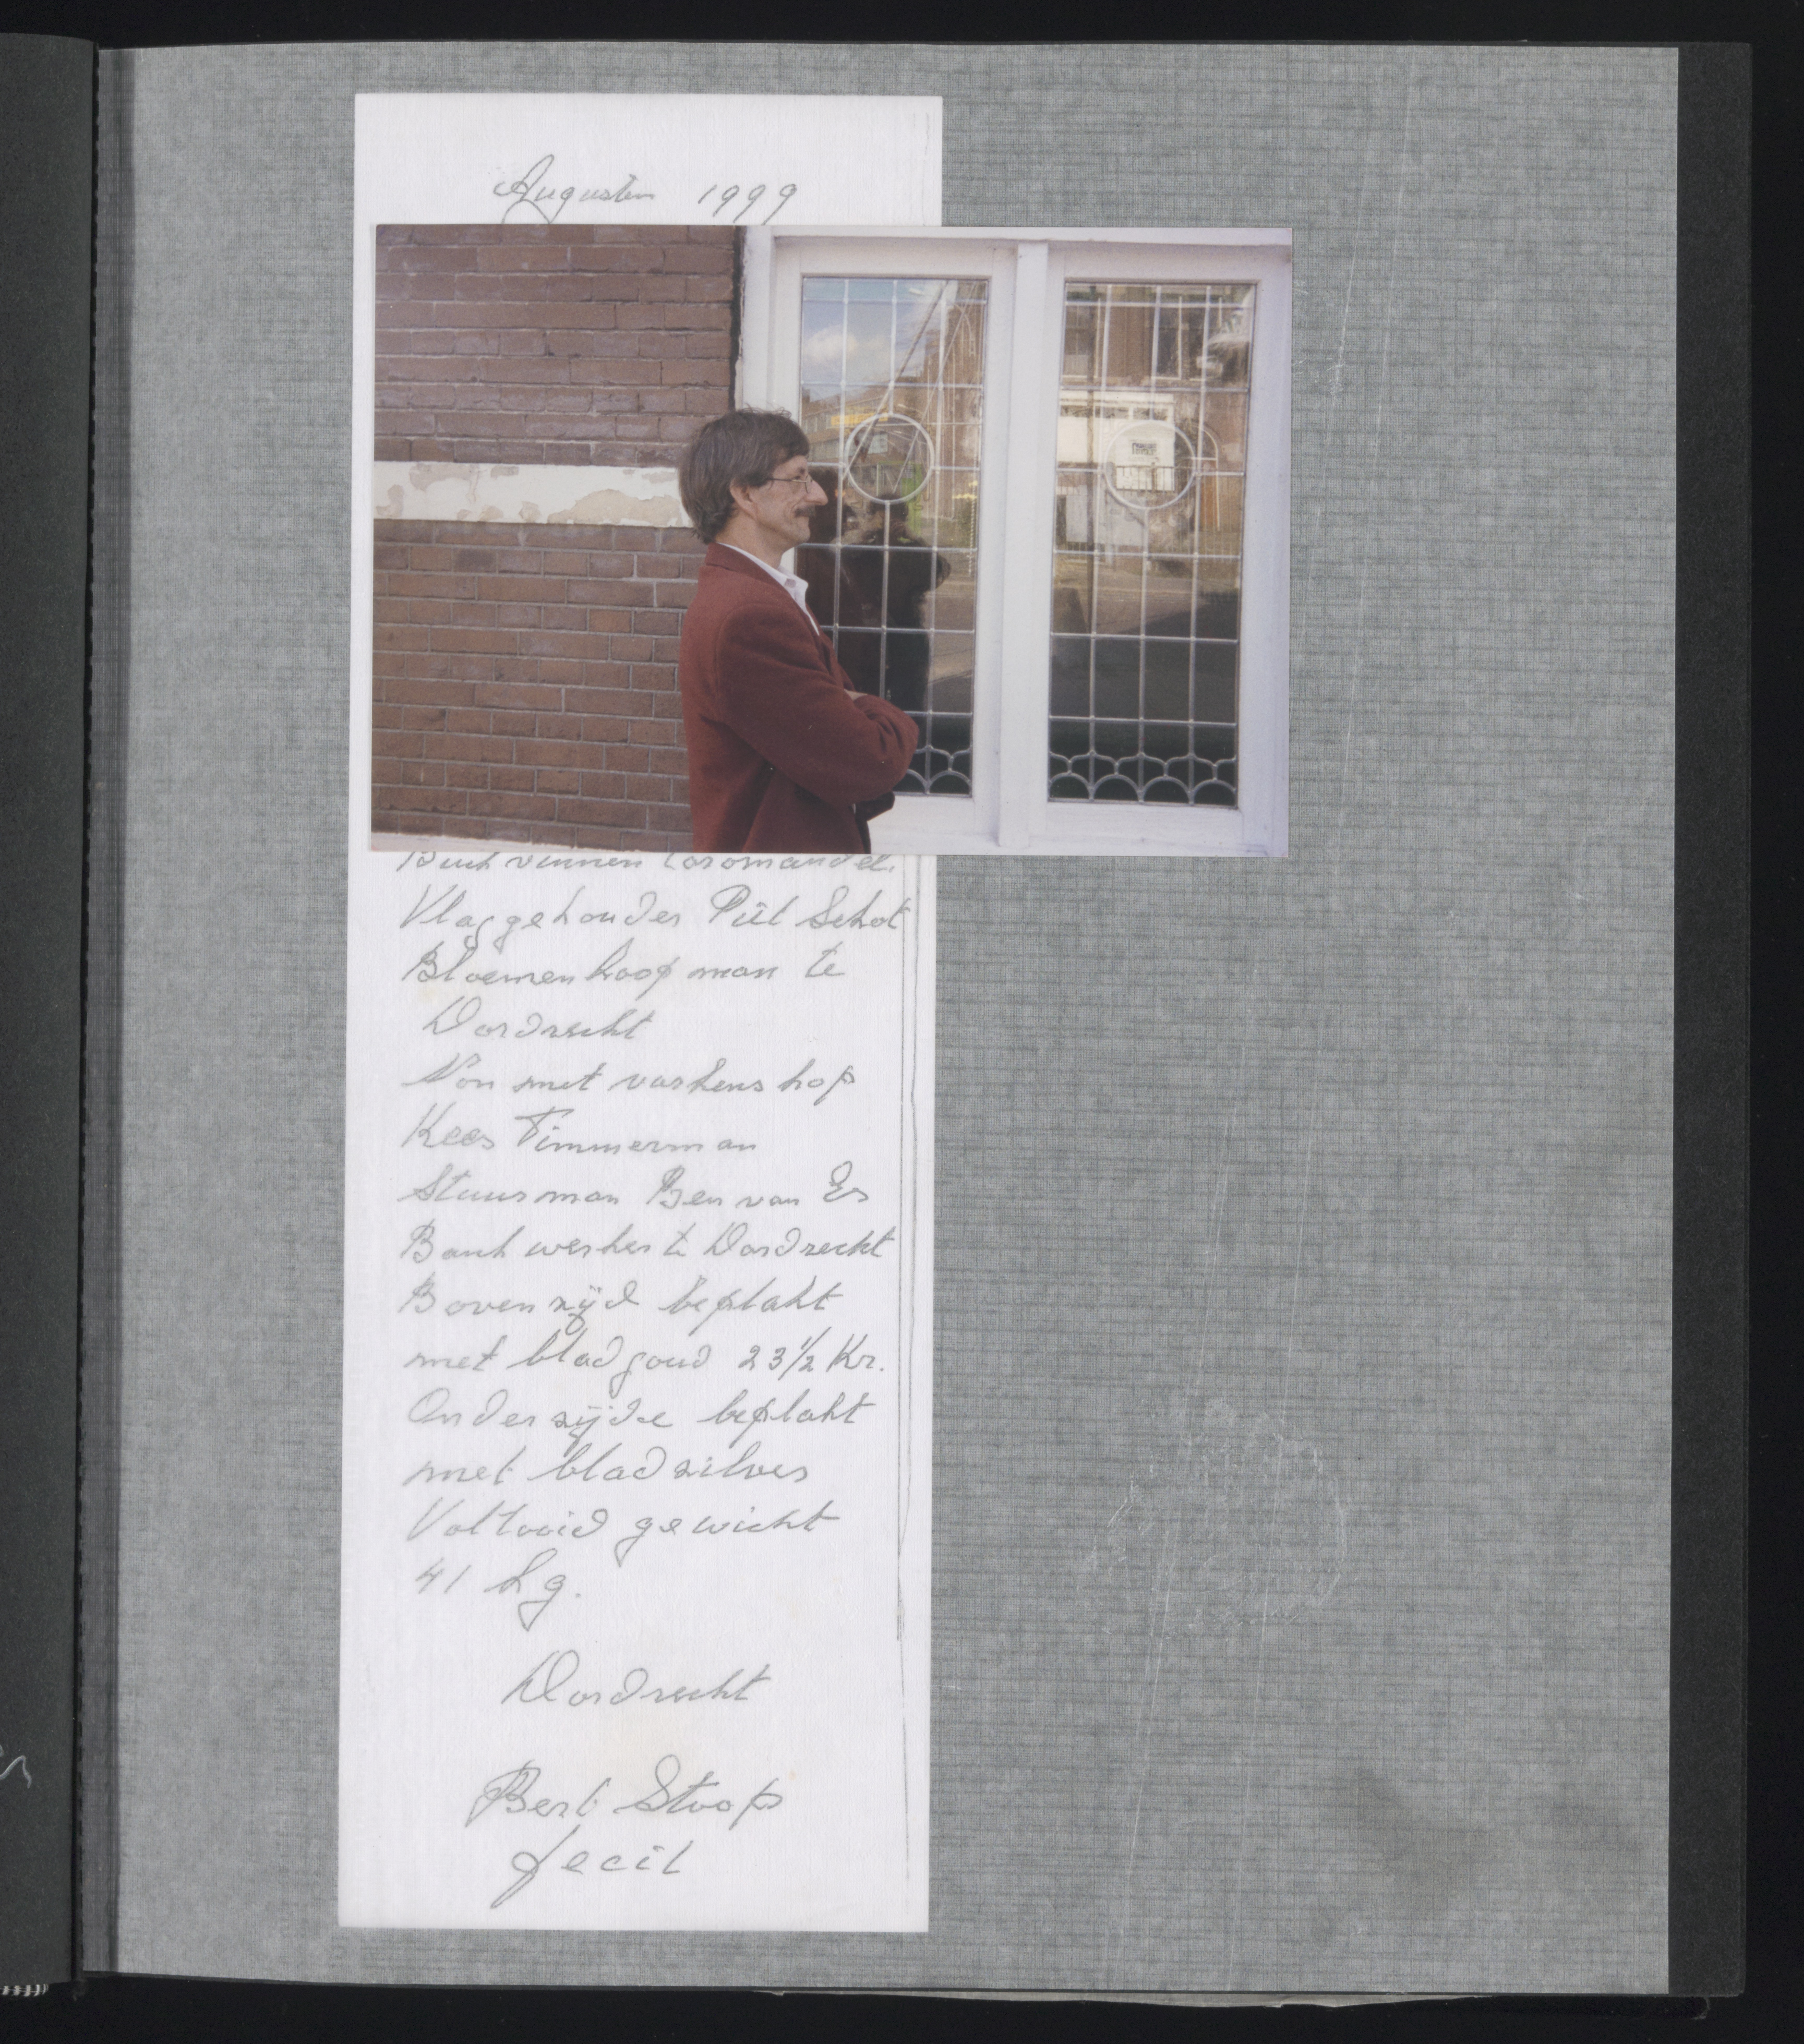 Augustus 1999
Vlaggehouder Piet Schot
Bloemenkoopman te
Dordrecht
Non met varkenskop
Kees Timmerman
Stuurman Ben van Es
Bankwerker te Dordrecht
Bovenzijd beplakt
met bladgoud 23 1/2 Kr.
Onderzijde beplakt
met bladzilver
Voltooid gewicht
41 kg.
Dordrecht
Bert Stoop
fecit